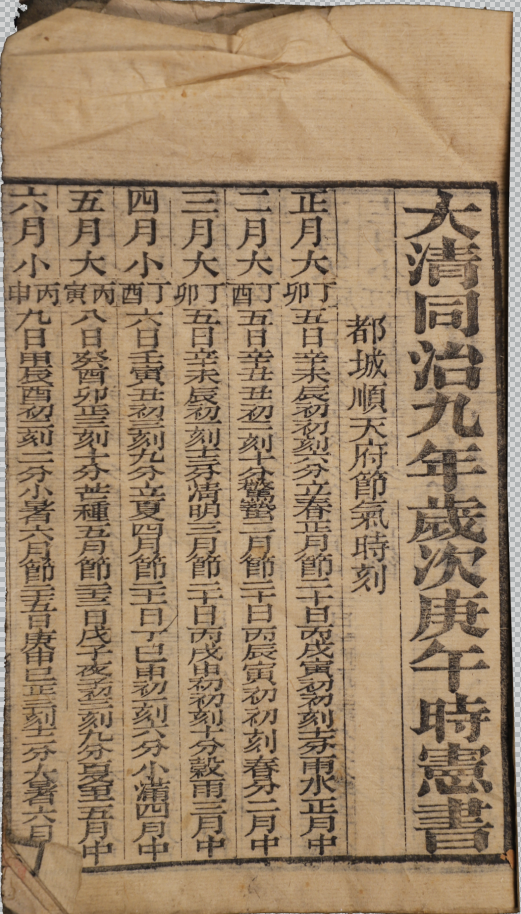 大清同治九年歲次庚午時憲書
都城順天府節氣時刻
正月大丁卯五日辛未辰初初刻六分立春正月節二十日丙戌寅初初刻十三分雨水正月中
二月大丁酉五日辛丑丑初二刻十分驚蟄二月節二十日丙辰寅初初刻春分二月中
三月大丁卯五日辛未辰初一刻十三分清明三月節二十日丙戌申初初刻十分穀雨三月中
四月小丁酉六日壬寅丑初三刻九分立夏四月節二十一日丁巳申初一刻六分小滿四月中
五月大丙寅八日癸酉卯正三刻十分芒種五月節二十三日戊子夜子初三刻九分夏至五月中
六月小丙申九日甲辰酉初一刻二分小暑六月節二十五日庚申巳正三刻十二分大暑六月